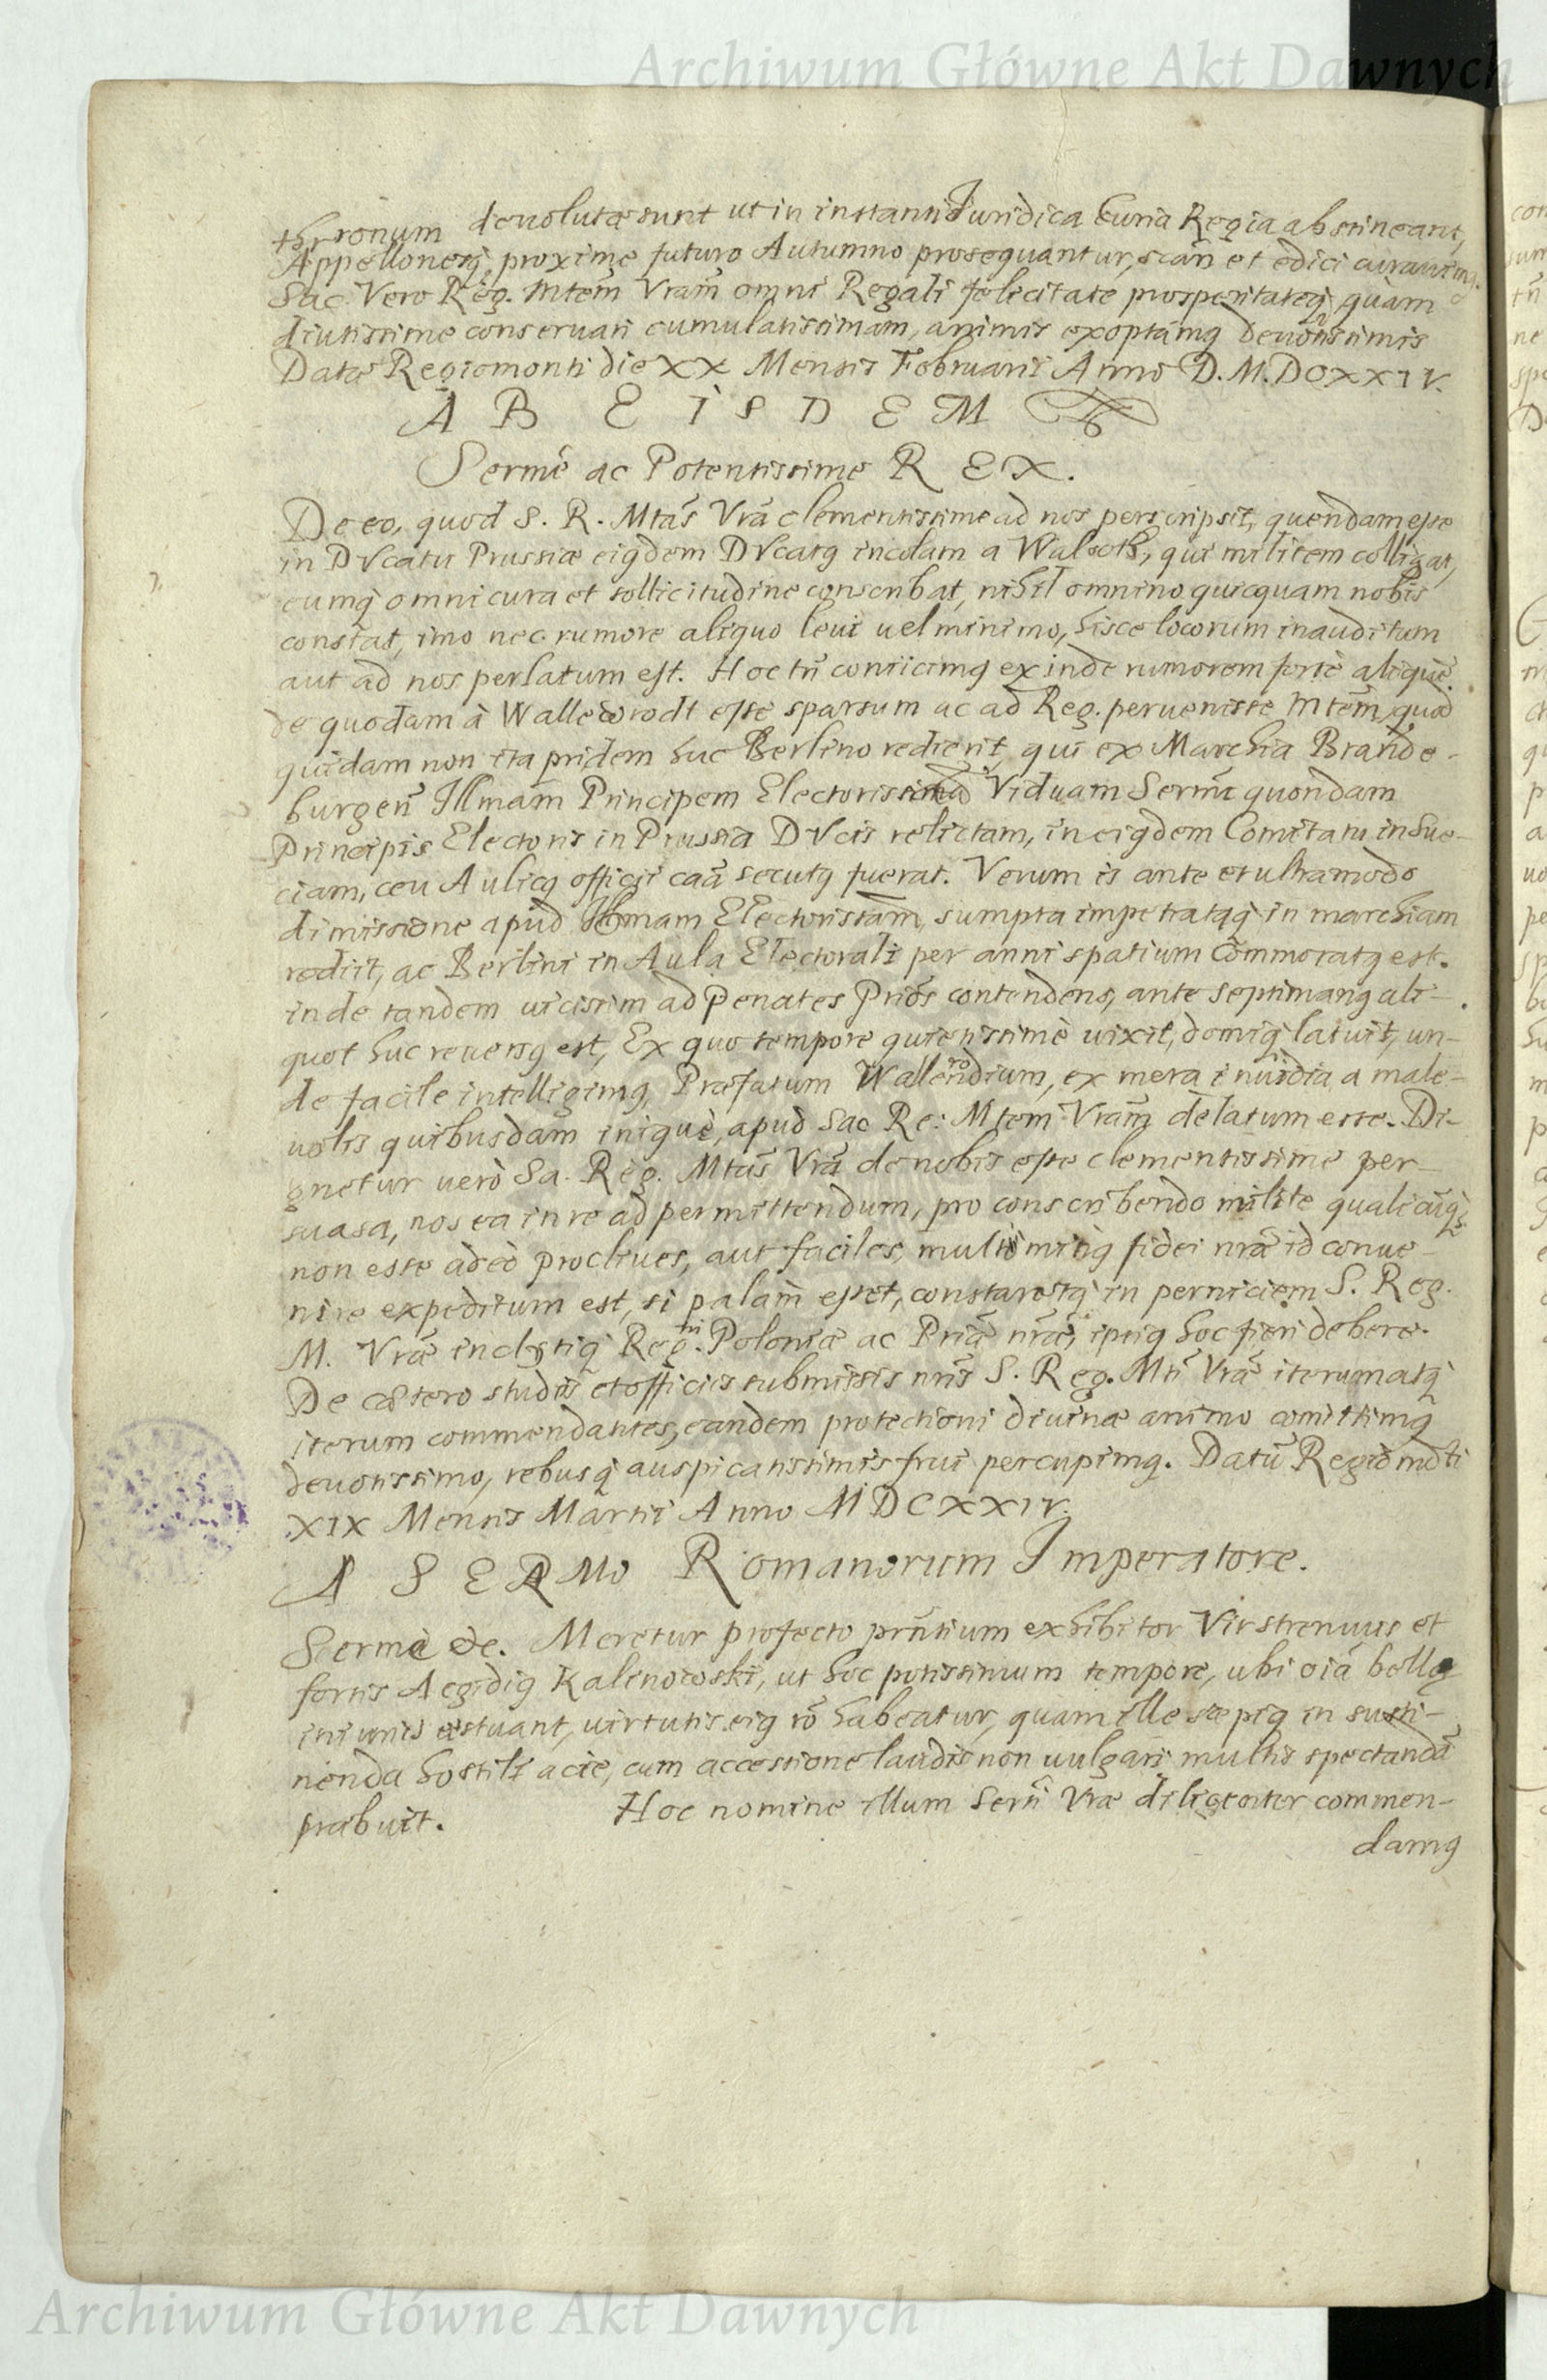 Archiwum Główne Akt Dawnych
thronum devolutæ sunt ut in instanti Juridica Curia Regia abstineant,
Appellonesq́, proxime futuro Autumno prosequantur, scān et edici curavimq.
Sac. Vero Reg. Mtem̃ Vram̃ omni Regali felicitate prosperitateq́ quàm
diutissime conservari cumulatissimam, animis exoptāmq devotissimis
Datæ Regiomonti die XX Mensis Februarii Anno D. M.DCXXIV.
A B E I S D E M
Sermẽ ac Potentissime R E X.
De eo, quod S. R. Mtas̃ Vrã clementissime ad nos perscripsit, quendam esse
in DVcatu Prussiæ eiqdem DVcatq incolam a Walroth, qui militem colligat,
eumq́ omni cura et sollicitudine conscribat, nihil omnino quicquam nobis
constat, imo nec rumore aliquo levi vel minimo, hisce locorum inauditum
aut ad nos perlatum est. Hoc tñ coniicimq exinde rumorem fortè aliquẽ
de quodam à Wallewrodt esse sparsum ac ad Reg. pervenisse Mtem̃, quod
quidam non ita pridem huc Berlino redierit, qui ex Marchia Brande-
burgeñ Illmam̃ Principem Electorissam Viduam Sermi quondam
Principis Electoris in Prussia DVcis relictam, in eiqdem Comitatu in Sue-
ciam, ceu Aulicq officii caã secutq fuerat. Verum is ante et ultra modo
dimissione apud Illmam Electorissam̃, sumpta impetrataq́ in marchiam
rediit, ac Berlini in Aula Electorali per anni spatium Commoratq est.
inde tandem vicissim ad Penates Prios̃ contendens, ante septimanq ali-
quot huc reversq est, Ex quo tempore quietissimè vixit, domiq́ latuit, un-
de facile intelligimq, Præfatum Wallenrodium, ex mera invidia a male-
volis quibusdam iniquè, apud Sac Re: Mtem Vram̃ delatum esse. Di-
gnetur verò Sa. Reg. Mtas̃ Vrã de nobis esse clementissime per-
suasa, nos ea in re ad permittendum, pro conscribendo milite qualicūq́
non esse adeò proclives, aut faciles, multo minq fidei nræ id conve-
nire expeditum est, si palam̃ esset, constaretq́ in perniciem S. Reg.
M. Vræ inclytiq́ Regni Poloniæ ac Priæ nræ, ipsiq hoc fieri debere.
De cætero studiis et officiis submissis nris̃ S. Reg. Mti Vræ iterum atq́
iterum commendantes, eandem protectioni divinæ animo comittimq
devotissimo, rebusq́ auspicatissimis frui percupimq. Datũ Regiomõti
XIX Mensis Martii Anno MDCXXIV.
A S E R Mo Romanorum Imperatore.
Serme &c. Meretur profecto prñtium exhibitor Vir strenuus et
fortis Aegidiq Kalinowski, ut hoc potissimum tempore, ubi oiã bellq
iniuriis æstuant, virtutis eiq rõ habeatur, quam ille sæpiq in susti-
nenda hostili acie, cum accessione laudis non vulgari, multis spectandã
præbuit. Hoc nomine illum Serti Vræ diligenter commen-
damq
Archiwum Główne Akt Dawnych